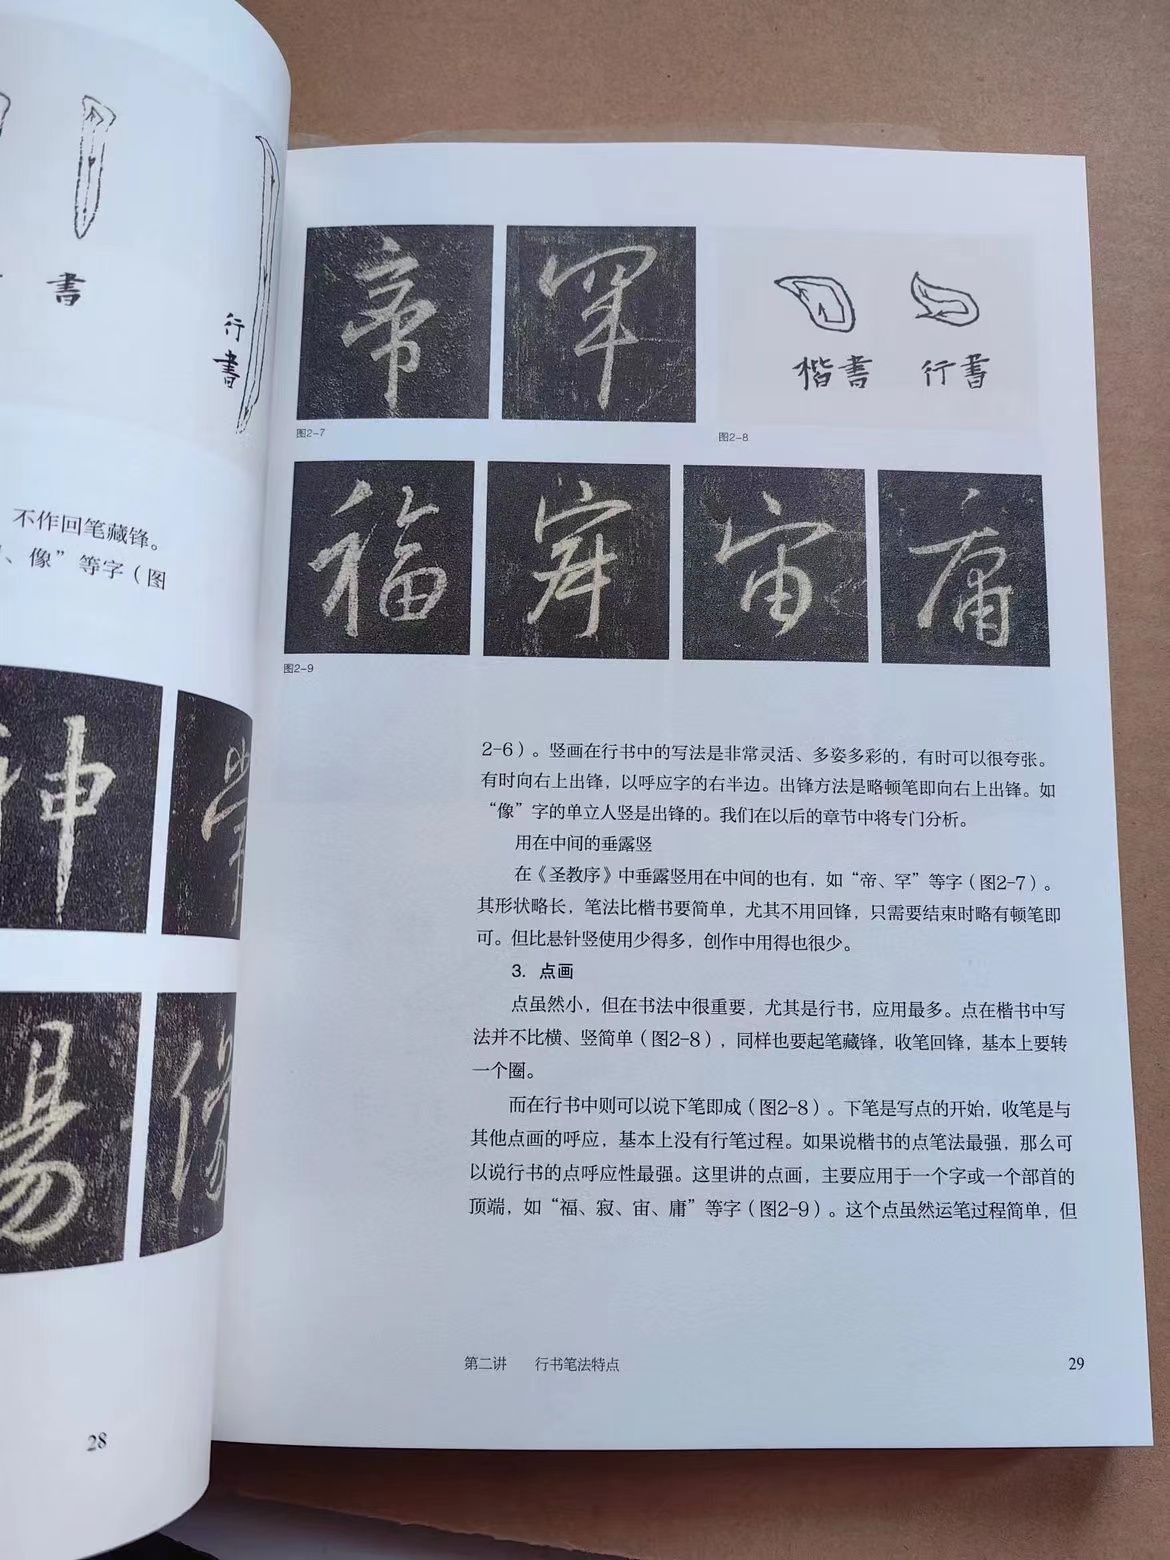 書
行
書
不作回笔藏锋。
、像”等字（图
神
28
帝
罕
图2-7
楷書
行書
图2-8
福
宙
庸
图2-9
2-6）。竖画在行书中的写法是非常灵活、多姿多彩的，有时可以很夸张。
有时向右上出锋，以呼应字的右半边。出锋方法是略顿笔即向右上出锋。如
“像”字的单立人竖是出锋的。我们在以后的章节中将专门分析。
用在中间的垂露竖
在《圣教序》中垂露竖用在中间的也有，如“帝、罕”等字（图2-7）。
其形状略长，笔法比楷书要简单，尤其不用回锋，只需要结束时略有顿笔即
可。但比悬针竖使用少得多，创作中用得也很少。
3. 点画
点虽然小，但在书法中很重要，尤其是行书，应用最多。点在楷书中写
法并不比横、竖简单（图2-8），同样也要起笔藏锋，收笔回锋，基本上要转
一个圈。
而在行书中则可以说下笔即成（图2-8）。下笔是写点的开始，收笔是与
其他点画的呼应，基本上没有行笔过程。如果说楷书的点笔法最强，那么可
以说行书的点呼应性最强。这里讲的点画，主要应用于一个字或一个部首的
顶端，如“福、寂、宙、庸”等字（图2-9）。这个点虽然运笔过程简单，但
第二讲 行书笔法特点
29